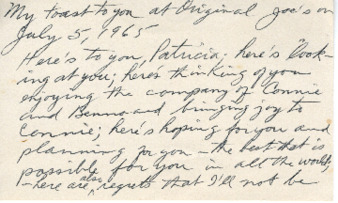 My toast to you at Original Joe's on
July 5, 1965
Here's to you, Patricia; here's "look-
ing at you; here's thinking of you
enjoying the company of Connie
and Benno and bringing joy to
Connie; here's hoping for you and
planning for you - the best that is
possible for you in all the world,
- here are also regrets that I'll not be